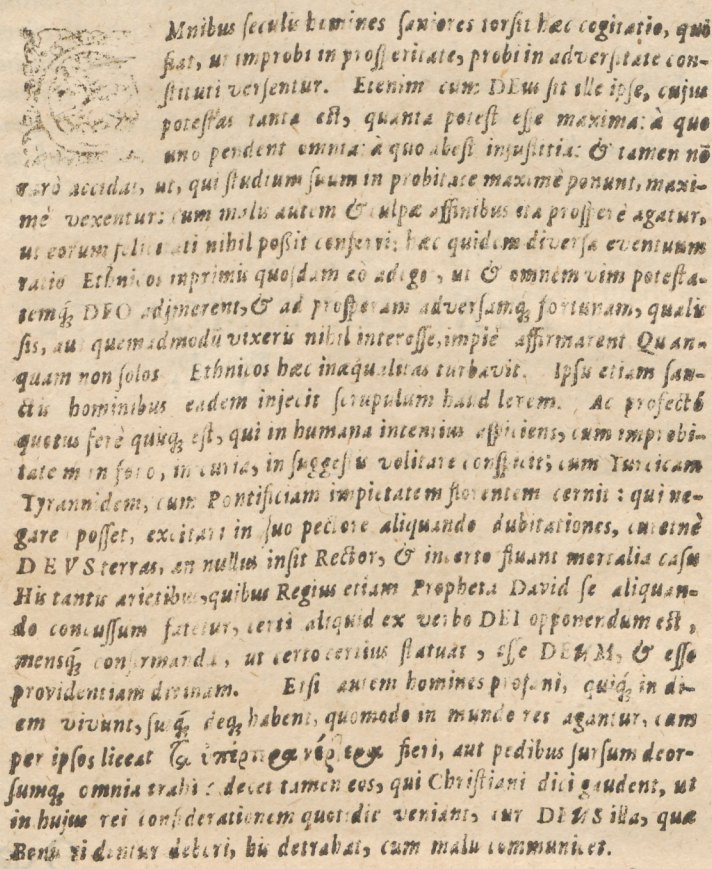 OMnibus seculis homines saniores torsit hæc cogitatio, quô
fiat, ut improbi in prosperitate, probi in adversitate con-
stituti versentur. Etenim cum DEus sit ille ipse, cujus
potestas tanta est, quanta potest esse maxima: à quo
uno pendent omnia: à quo abest injustitia: & tamen nō
rarò accidat, ut, qui studium suum in probitate maximè ponunt, maxi-
mè vexentur: cum malis autem & culpæ affinibus ita prosperè agatur,
ut eorum felicitati nihil possit conferri: hæc quidem diversa eventuum
ratio Ethnicos inprimis quosdam eò adegit, ut & omnem vim potesta-
temq́; DEO adjmerent, & ad prosperam adversamq́; fortunam, qualis
sis, aut quemadmodū vixeris nihil interesse, impiè affirmarent Quan-
quam non solos Ethnicos hæc inæqualitas turbavit. Ipsis etiam san-
ctis hominibus eadem injecit scrupulum haud levem. Ac profectò
quotus ferè quisq́; est, qui in humana intentius aspiciens, cum improbi-
tatem in foro, in curia, in suggestis volitare conspicit; cum Turcicam
Tyrannidem, cum Pontificiam impietatem florentem cernit: qui ne-
gare posset, excitari in suo pectore aliquando dubitationes, curetnè
DEUS terras, an nullus insit Rector, & incerto fluant mortalia casu
His tantis arietibus, quibus Regius etiam Propheta David se aliquan-
do concussum fatetur, certi aliquid ex verbo DEI opponendum est,
mensq́; confirmanda, ut certo certius statuat, esse DEUM, & esse
providentiam divinam. Etsi autem homines profani, quiq́; in di-
em vivunt, susq́; deq́; habent, quomodo in mundo res agantur, cum
per ipsos liceat τὰ ὑπέρτερα νέρτερα fieri, aut pedibus sursum deor-
sumq́; omnia trahi: decet tamen eos, qui Christiani dici gaudent, ut
in hujus rei considerationem quotidie veniant, cur DEUS illa, quæ
Bonis videntur deberi, his detrahat, cum malis communicet.